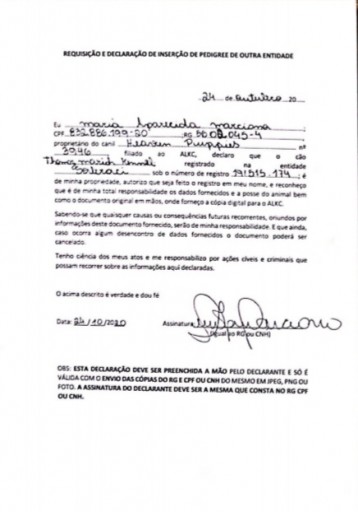 REQUISIÇÃO E DECLARAÇÃO DE INSERÇÃO DE PEDIGREE DE OUTRA ENTIDADE
24 de outubro 20
Eu maria Aparecida marciona ;
CPF 832.886.199-20 RG
proprietário do canil Heaven Puppies nº
3946 filiado ao ALKC, declaro que o cão
Kennel registrado na entidade
sob o número de registro ; é
de minha propriedade, autorizo que seja feito o registro em meu nome, e reconheço
que é de minha total responsabilidade os dados fornecidos e a posse do animal bem
como o documento original em mãos, onde forneço a cópia digital para o ALKC.
Sabendo-se que quaisquer causas ou consequências futuras recorrentes, oriundos por
informações deste documento fornecido, serão de minha responsabilidade. E que ainda,
caso ocorra algum desencontro de dados fornecidos o documento poderá ser
cancelado.
Tenho ciência dos meus atos e me responsabilizo por ações cíveis e criminais que
possam recorrer sobre as informações aqui declaradas.
O acima descrito é verdade e dou fé
Data: 24/10/2020 Assinatura
(Igual ao RG ou CNH)
OBS: ESTA DECLARAÇÃO DEVE SER PREENCHIDA A MÃO PELO DECLARANTE E SÓ É
VÁLIDA COM O ENVIO DAS CÓPIAS DO RG E CPF OU CNH DO MESMO EM JPEG, PNG OU
FOTO. A ASSINATURA DO DECLARANTE DEVE SER A MESMA QUE CONSTA NO RG CPF
OU CNH.